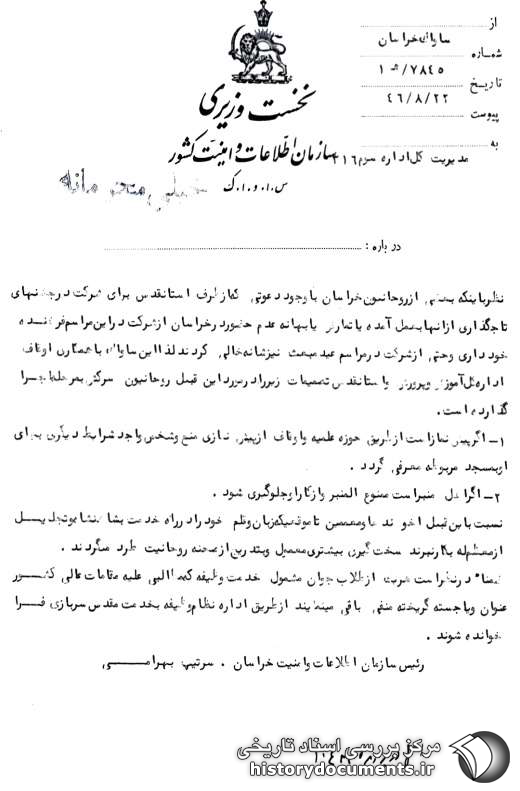 از
ساواک خراسان
شماره
۷۸۴۵/ ۱ه
تاریخ
۴۶/۸/۲۲
پیوست
به
مدیریت کل اداره سوم ۳۱۶
نخست وزیری
سازمان اطلاعات و امنیت کشور
س.ا.و.ا.ک
خیلی محرمانه
درباره :
نظر باینکه بعضی از روحانیون خراسان با وجود دعوتی که از طرف استانقدس برای شرکت در جشنهای
تاجگذاری از آنها بعمل آمده با تمارض یا بهانه عدم حضور در خراسان از شرکت در این مراسم فرخنده
خودداری و حتی از شرکت در مراسم عید مبعث نیز شانه خالی کردند لذا این ساواک با همکاری اوقاف
اداره کل آموزش و پرورش و استانقدس تصمیمات زیر را در مورد این قبیل روحانیون سرکش بمرحله اجرا
گذارده است.
۱- اگر پیشنماز است از طریق حوزه علمیه یا اوقاف از پیش نمازی منع و شخص واجد شرایط دیگری بجای
او بمسجد مربوطه معرفی گردد .
۲- اگر اهل منبر است ممنوع المنبر و از کار او جلوگیری شود .
نسبت باین قبیل آخوندها و معممین تا موقعیکه زبان و قلم خود را در راه خدمت بشاهنشاه و تجلیل
از معظم‌له بکار نبرند سخت گیری بیشتری معمول و بتدریج از صحنه روحانیت طرد میگردند .
ضمنا" در نظر است هریک از طلاب جوان مشمول خدمت وظیفه که مطالبی علیه مقامات عالی کشور
عنوان و یا جسته گریخته منفی بافی مینمایند از طریق اداره نظام وظیفه بخدمت مقدس سربازی فرا
خوانده شوند .
رئیس سازمان اطلاعات و امنیت خراسان . سرتیپ بهرامی
مرکز بررسی اسناد تاریخی
historydocuments.ir